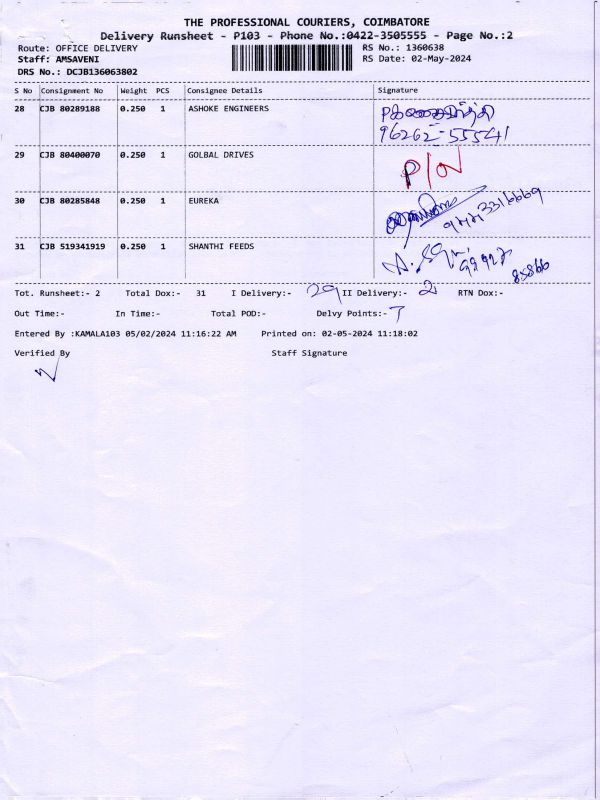 THE PROFESSIONAL COURIERS, COIMBATORE
Delivery Runsheet - P103 - Phone No.:0422-3505555 - Page No.:2
Route: OFFICE DELIVERY RS No.: 1360638
Staff: AMSAVENI RS Date: 02-May-2024
DRS No.: DCJB136063802
S No Consignment No Weight PCS Consignee Details Signature
28 CJB 80289188 0.250 1 ASHOKE ENGINEERS
96262-55541
29 CJB 80400070 0.250 1 GOLBAL DRIVES P/N
30 CJB 80285848 0.250 1 EUREKA
31 CJB 519341919 0.250 1 SHANTHI FEEDS
85866
Tot. Runsheet:- 2 Total Dox:- 31 I Delivery:- 29 II Delivery:- 2 RTN Dox:-
Out Time:- In Time:- Total POD:- Delvy Points:- 7
Entered By :KAMALA103 05/02/2024 11:16:22 AM Printed on: 02-05-2024 11:18:02
Verified By Staff Signature